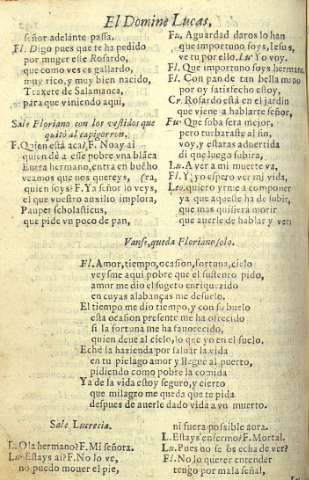 El Domine Lucas,
señor adelante passa.
Fl. Digo pues que te ha pedido
por muger este Rosardo,
que como ves es gallardo,
muy rico, y muy bien nacido,
Traxete de Salamanca,
para que viniendo aqui,
Sale Floriano con los vestidos que
quitó al capigorron.
F. Quien está acà? F. No ay ai
quien dè a este pobre vna blãca
Fu. era hermano, entra en buẽ ho
veamos que nos quereys, (ra,
quien soys? F. Ya señor lo veys,
el que vuestro auxilio implora,
Pauper scholasticus,
que pide vn poco de pan,
Fu. Aguardad daros lo han
que importuno soys, Iesus,
ve tu por ello. Lu. Yo voy.
Fl. Que importuno soys hermano
Fl. Con pan de tan bella mano
por oy satisfecho estoy,
Cr. Rosardo està en el jardin
que viene a hablarte señor,
Fu. Que soba serà mejor,
pero turbaráse al fin,
voy, y estaras aduertida
di que luego subira,
Lu. A ver a mi muerte va,
Fl. Y yo espero ver mi vida,
Leo. quiero yrme a componer
ya que aqueste ha de subir,
que mas quisiera morir
que auerle de hablar y ver.
Vanse, queda Floriano solo.
Fl. Amor, tiempo, ocasion, fortuna, cielo
veysme aqui pobre que el sustento pido,
amor me dio el sugeto enriquezido
en cuyas alabanças me desuelo.
El tiempo me dio tiempo, y con su buelo
esta ocasion presente me ha ofrecido
si la fortuna me ha fauorecido,
quien deue al cielo, lo que yo en el suelo.
Echè la hazienda por saluar la vida
en tu pielago amor y lleguè al puerto,
pidiendo como pobre la comida
Ya de la vida estoy seguro, y cierto
que milagro me queda que te pida
despues de auerle dado vida a vn muerto.
Sale Lucrecia.
L. Ola hermano? F. Mi señora.
Lu. Estays ai? F. No lo ve,
no puedo mouer el pie,
ni fuera possible aora.
L. Estays enfermo? F. Mortal.
Lu. Pues no se os echa de ver?
Fl. No lo querer entender
tengo por mala señal,